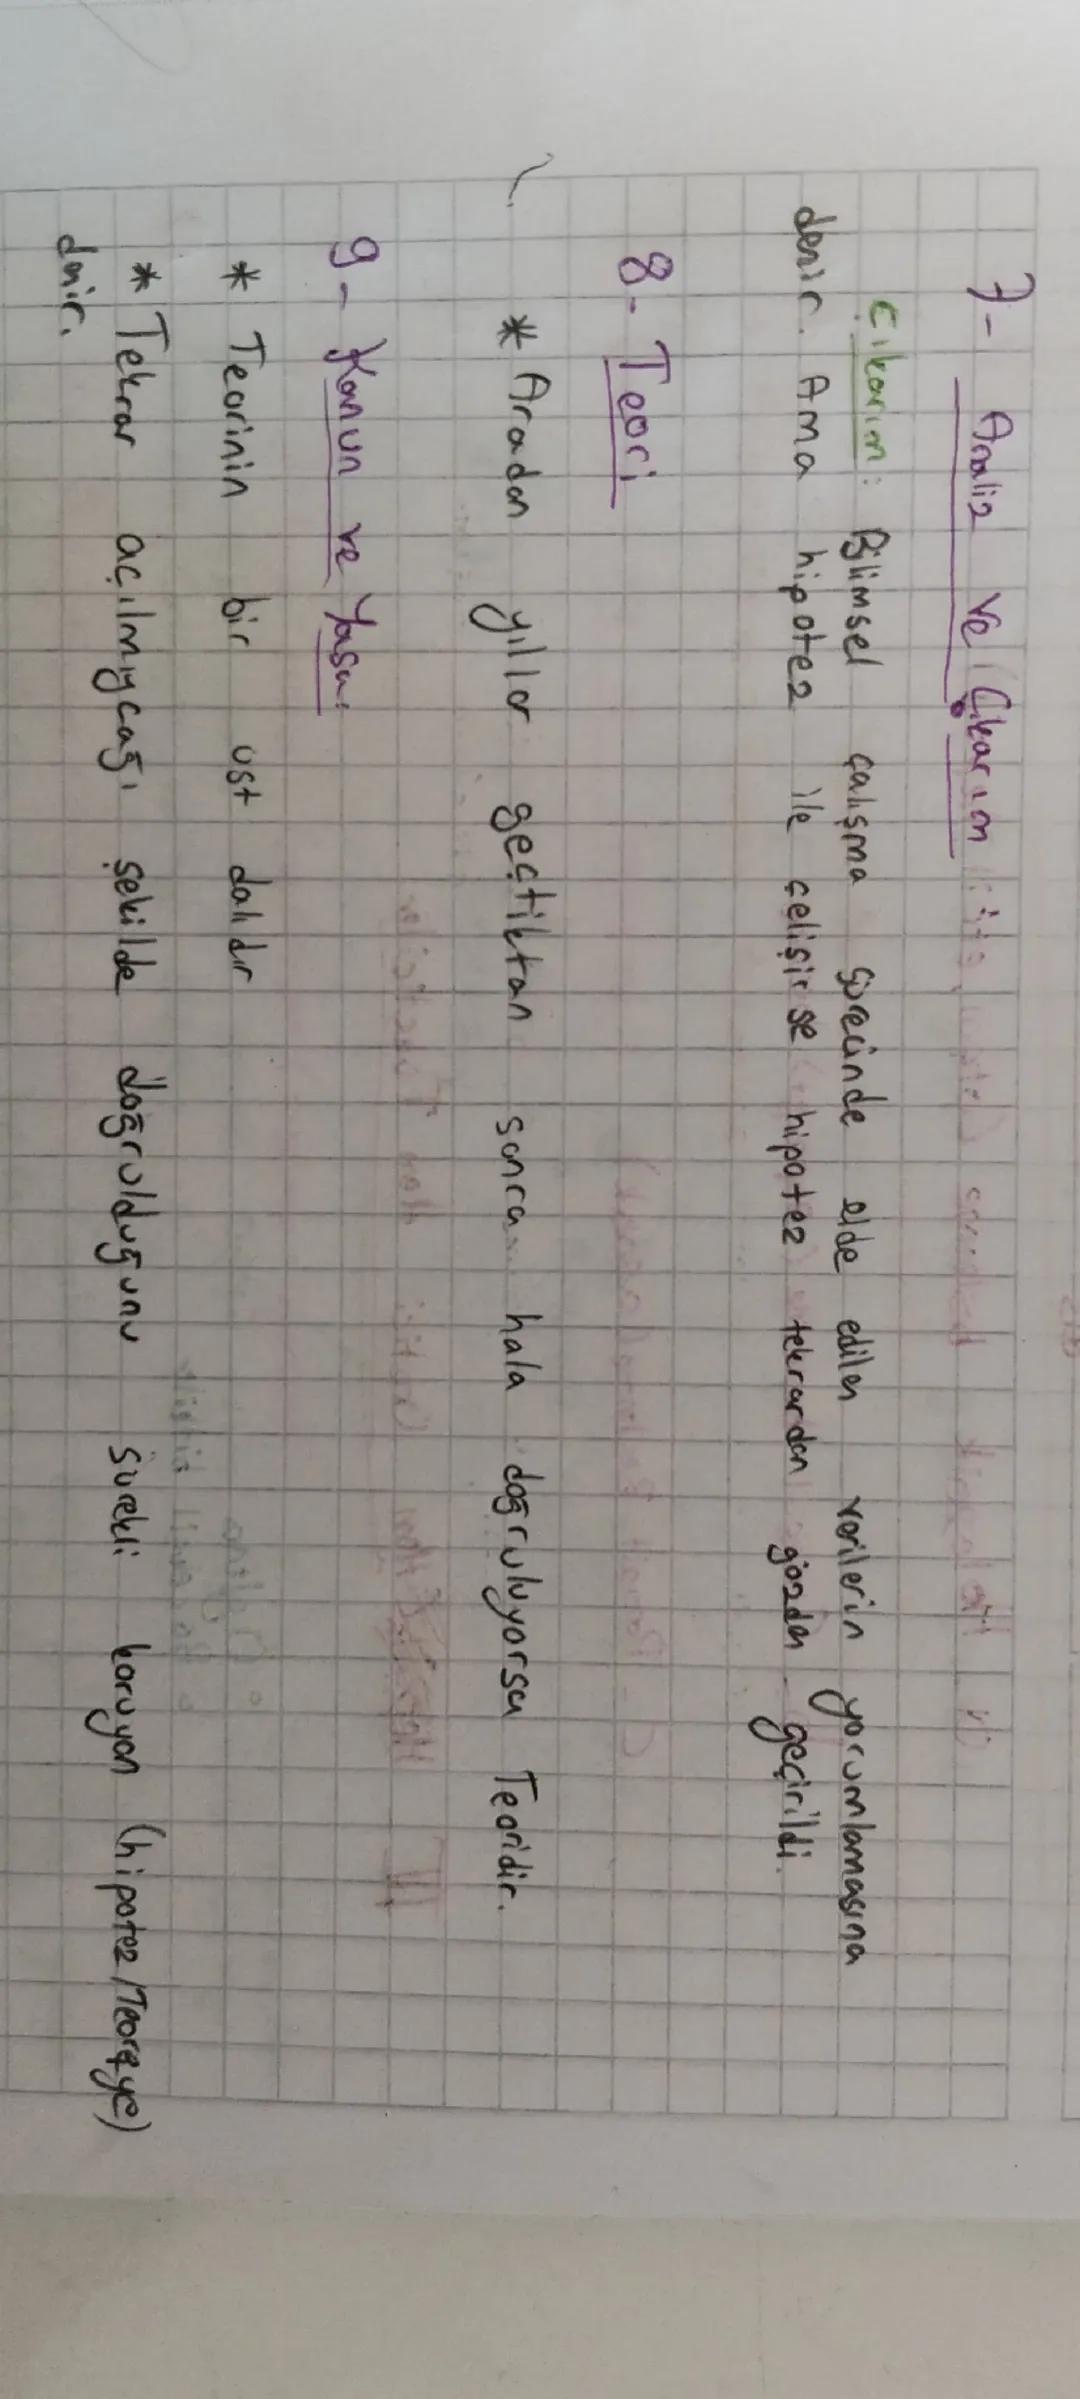 7- Analiz ve Çıkarım
Çıkarım: Bilimsel çalışma sürecinde elde edilen verilerin yorumlamasına
denir. Ama hipotez ile çelişirse hipotez tekrardan gözden geçirildi.
8- Teori
* Aradan yıllar geçtiktan sonra hala doğruluyorsa Teoridir.
9- Kanun ve Yasa:
* Teorinin bir üst dalıdır
* Tekrar açılmıycağı şekilde doğrulduğunu sürekli koruyan (hipotez/Teoreye)
denir.